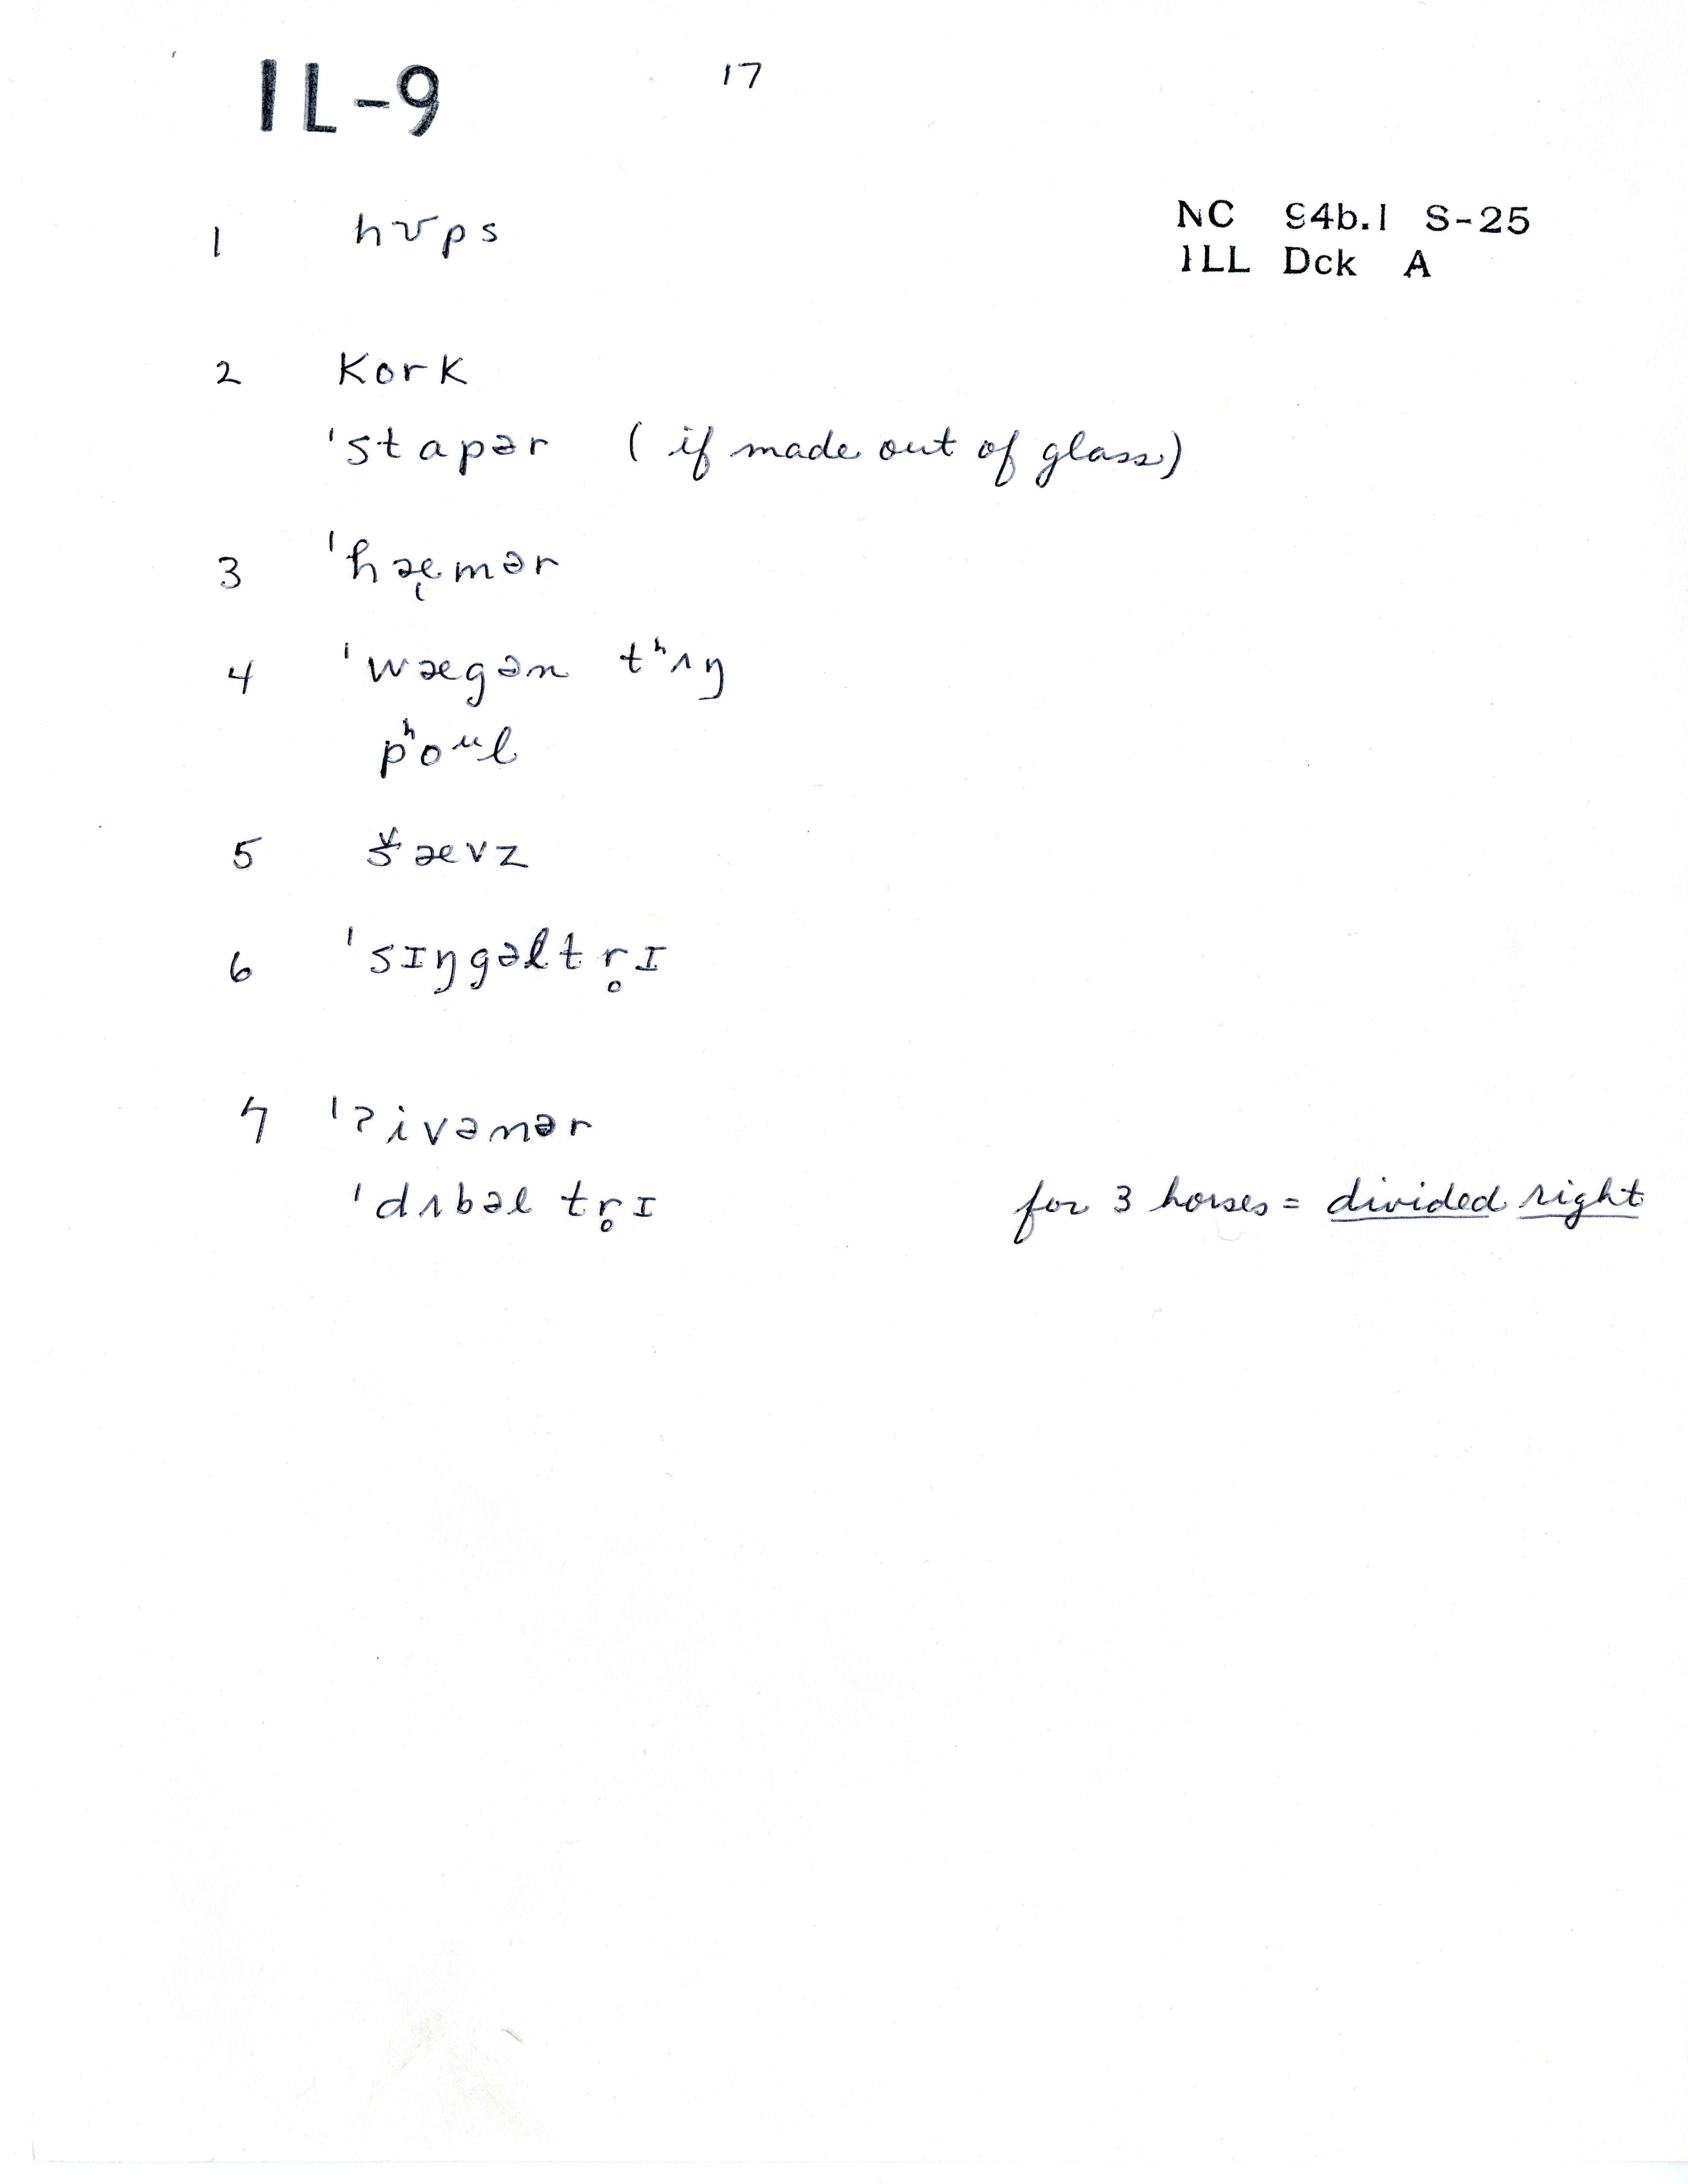 IL-9 17
NC 94b.1 S-25
ILL Dck A
1 hʊps
2 kork
ˈstapər (if made out of glass)
3 ˈhæ̨mər
4 ˈwægən tʰʌŋ
pʰoᵘl
5 š̵ævz
6 ˈsɪŋgəltr̥ɪ
7 ˈʔivənər
ˈdʌbəl tr̥ɪ for 3 horses = divided right